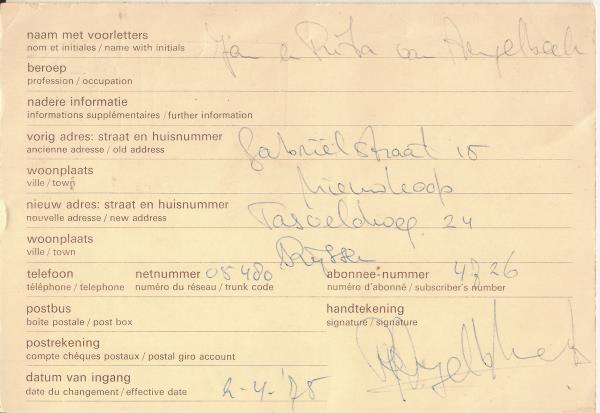 naam met voorletters
nom et initiales / name with initials
Jan en Rita van
beroep
profession / occupation
nadere informatie
informations supplémentaires / further information
vorig adres: straat en huisnummer
ancienne adresse / old address
Gabriëlstraat 15
woonplaats
ville / town
Nieuwkoop
nieuw adres: straat en huisnummer
nouvelle adresse / new address
24
woonplaats
ville / town
Rijssen
telefoon netnummer 05480 abonnee-nummer 4726
téléphone / telephone numéro du réseau / trunk code numéro d'abonné / subscriber's number
postbus handtekening
boîte postale / post box signature / signature
postrekening
compte chéques postaux / postal giro account
datum van ingang
date du changement / effective date
2-4-'75